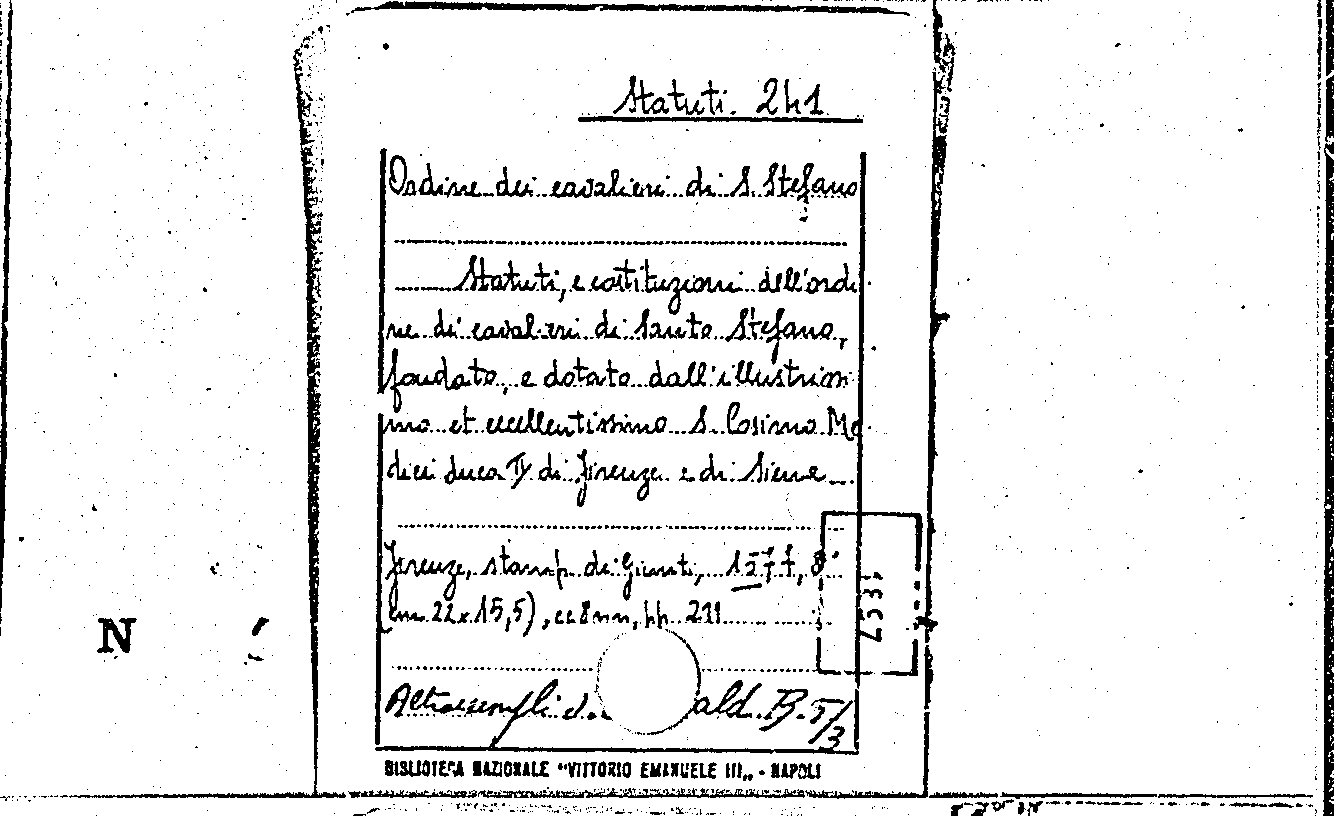 Statuti. 241
Ordine dei cavalieri di S. Stefano
Statuti, e costituzioni dell'ordi
ne di cavalieri di Santo Stefano,
fondato, e dotato dall'illustrissi
mo et eccellentissimo S. Cosimo Me
dici duca II di Firenze e di Siena
Firenze, stamp. di Giunti, 1577, 8°
(cm 22x15,5), cc 8 nn, pp. 211
4537
N
Altro esempl. ald. B. 5/3
BIBLIOTECA NAZIONALE "VITTORIO EMANUELE III„ - NAPOLI